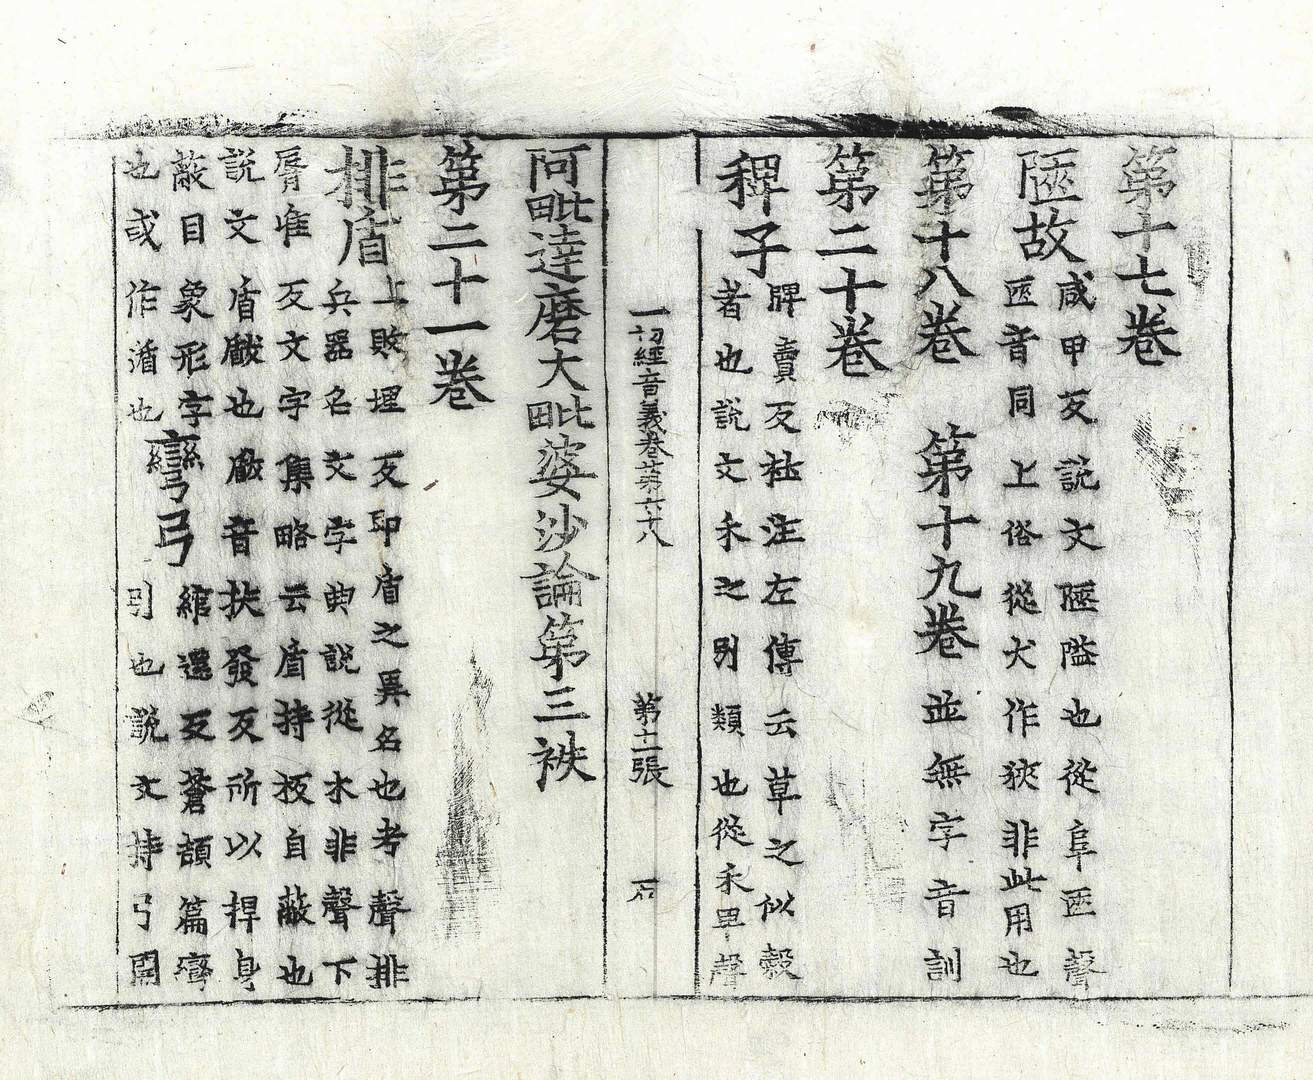 第十七卷
陿故
咸甲反説文陿隘也從阜匧聲
匧音同上俗從犬作狹非此用也
第十八卷 第十九卷 並無字音訓
第二十卷
稗子
牌賣反杜注左傳云草之似穀
者也説文禾之別類也從禾卑聲
一切經音義卷第六十八 第十二張 石
阿毗達磨大毗婆沙論第三袟
第二十一卷
排盾
上敗埋反即盾之異名也考聲排
兵器名文字典説從木非聲下
脣准反文字集略云盾持板自蔽也
説文盾瞂也瞂音扶發反所以捍身
蔽目象形字
也或作遁也
彎弓
綰還反蒼頡篇彎
引也説文持弓關